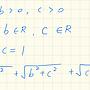 b > 0, c > 0
b ∈ R, c ∈ R
c = 1
² + √b² + c² + √c